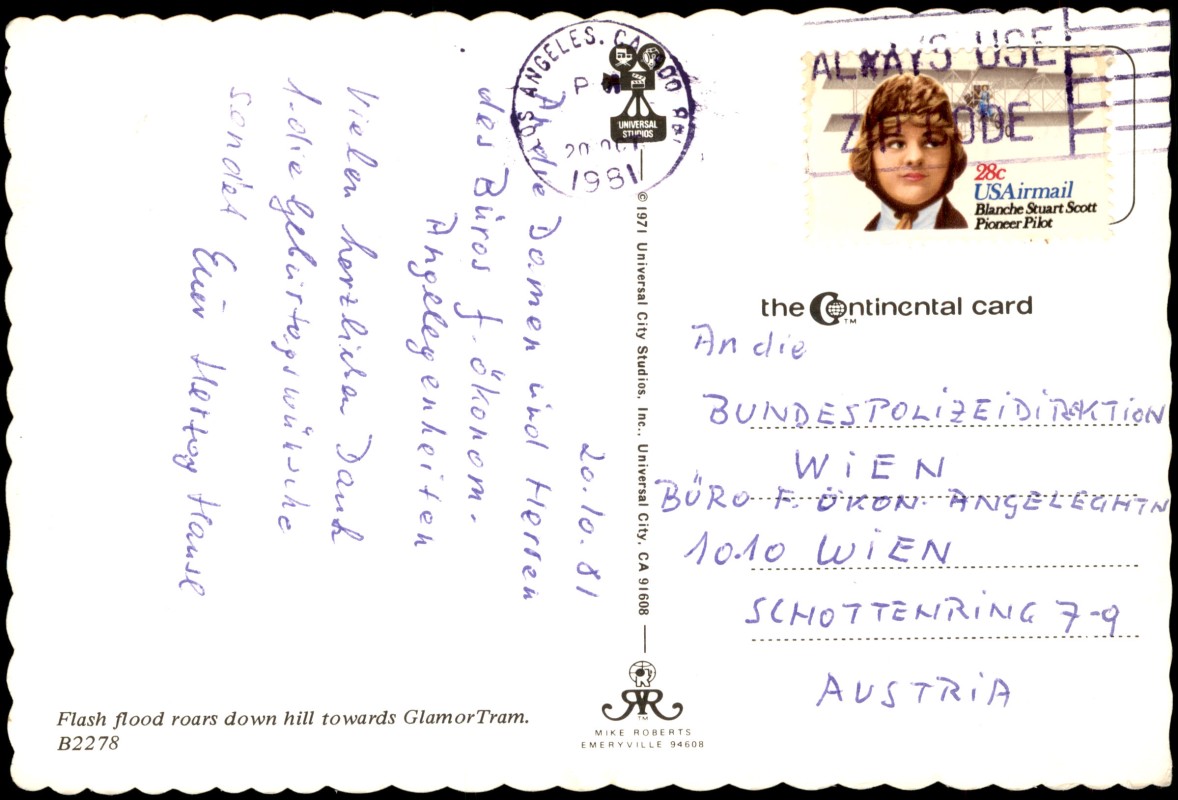 20.10.81
An die Damen und Herren
des Büros f. ökonom.
Angelegenheiten
Vielen herzlichen Dank
f. die Gebürtagswünsche
sendet
Euer Herzog Hansl
Flash flood roars down hill towards GlamorTram.
B2278
LOS ANGELES, CA
PM
20 OCT
1981
UNIVERSAL
STUDIOS
© 1971 Universal City Studios, Inc., Universal City, CA 91608
MIKE ROBERTS
EMERYVILLE 94608
ALWAYS USE
ZIP CODE
28c
USAirmail
Blanche Stuart Scott
Pioneer Pilot
the Continental card
TM
An die
BUNDESPOLIZEIDIREKTION
WIEN
BÜRO F. ÖKON. ANGELEGHTN
1010 WIEN
SCHOTTENRING 7-9
AUSTRIA